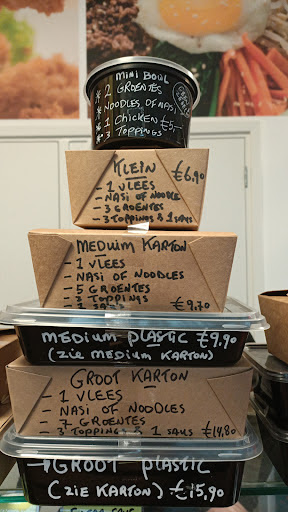 Mini Bowl
* 2 GROENTES
* NOODLES OF NASI
* 1 CHICKEN €5,-
* 3 TOPPINGS
KLEIN €6,90
- 1 VLEES
- NASI OF NOODLE
- 3 GROENTES
- 3 TOPPINGS & 1 SAUS
MEDIUM KARTON
- 1 VLEES
- NASI OF NOODLES
- 5 GROENTES
- 3 TOPPINGS
- 1 SAUS €9,70
MEDIUM PLASTIC €9,90
(ZIE MEDIUM KARTON)
GROOT KARTON
- 1 VLEES
- NASI OF NOODLES
- 7 GROENTES
- 3 TOPPING & 1 SAUS €14,80
GROOT PLASTIC
(ZIE KARTON) €15,90